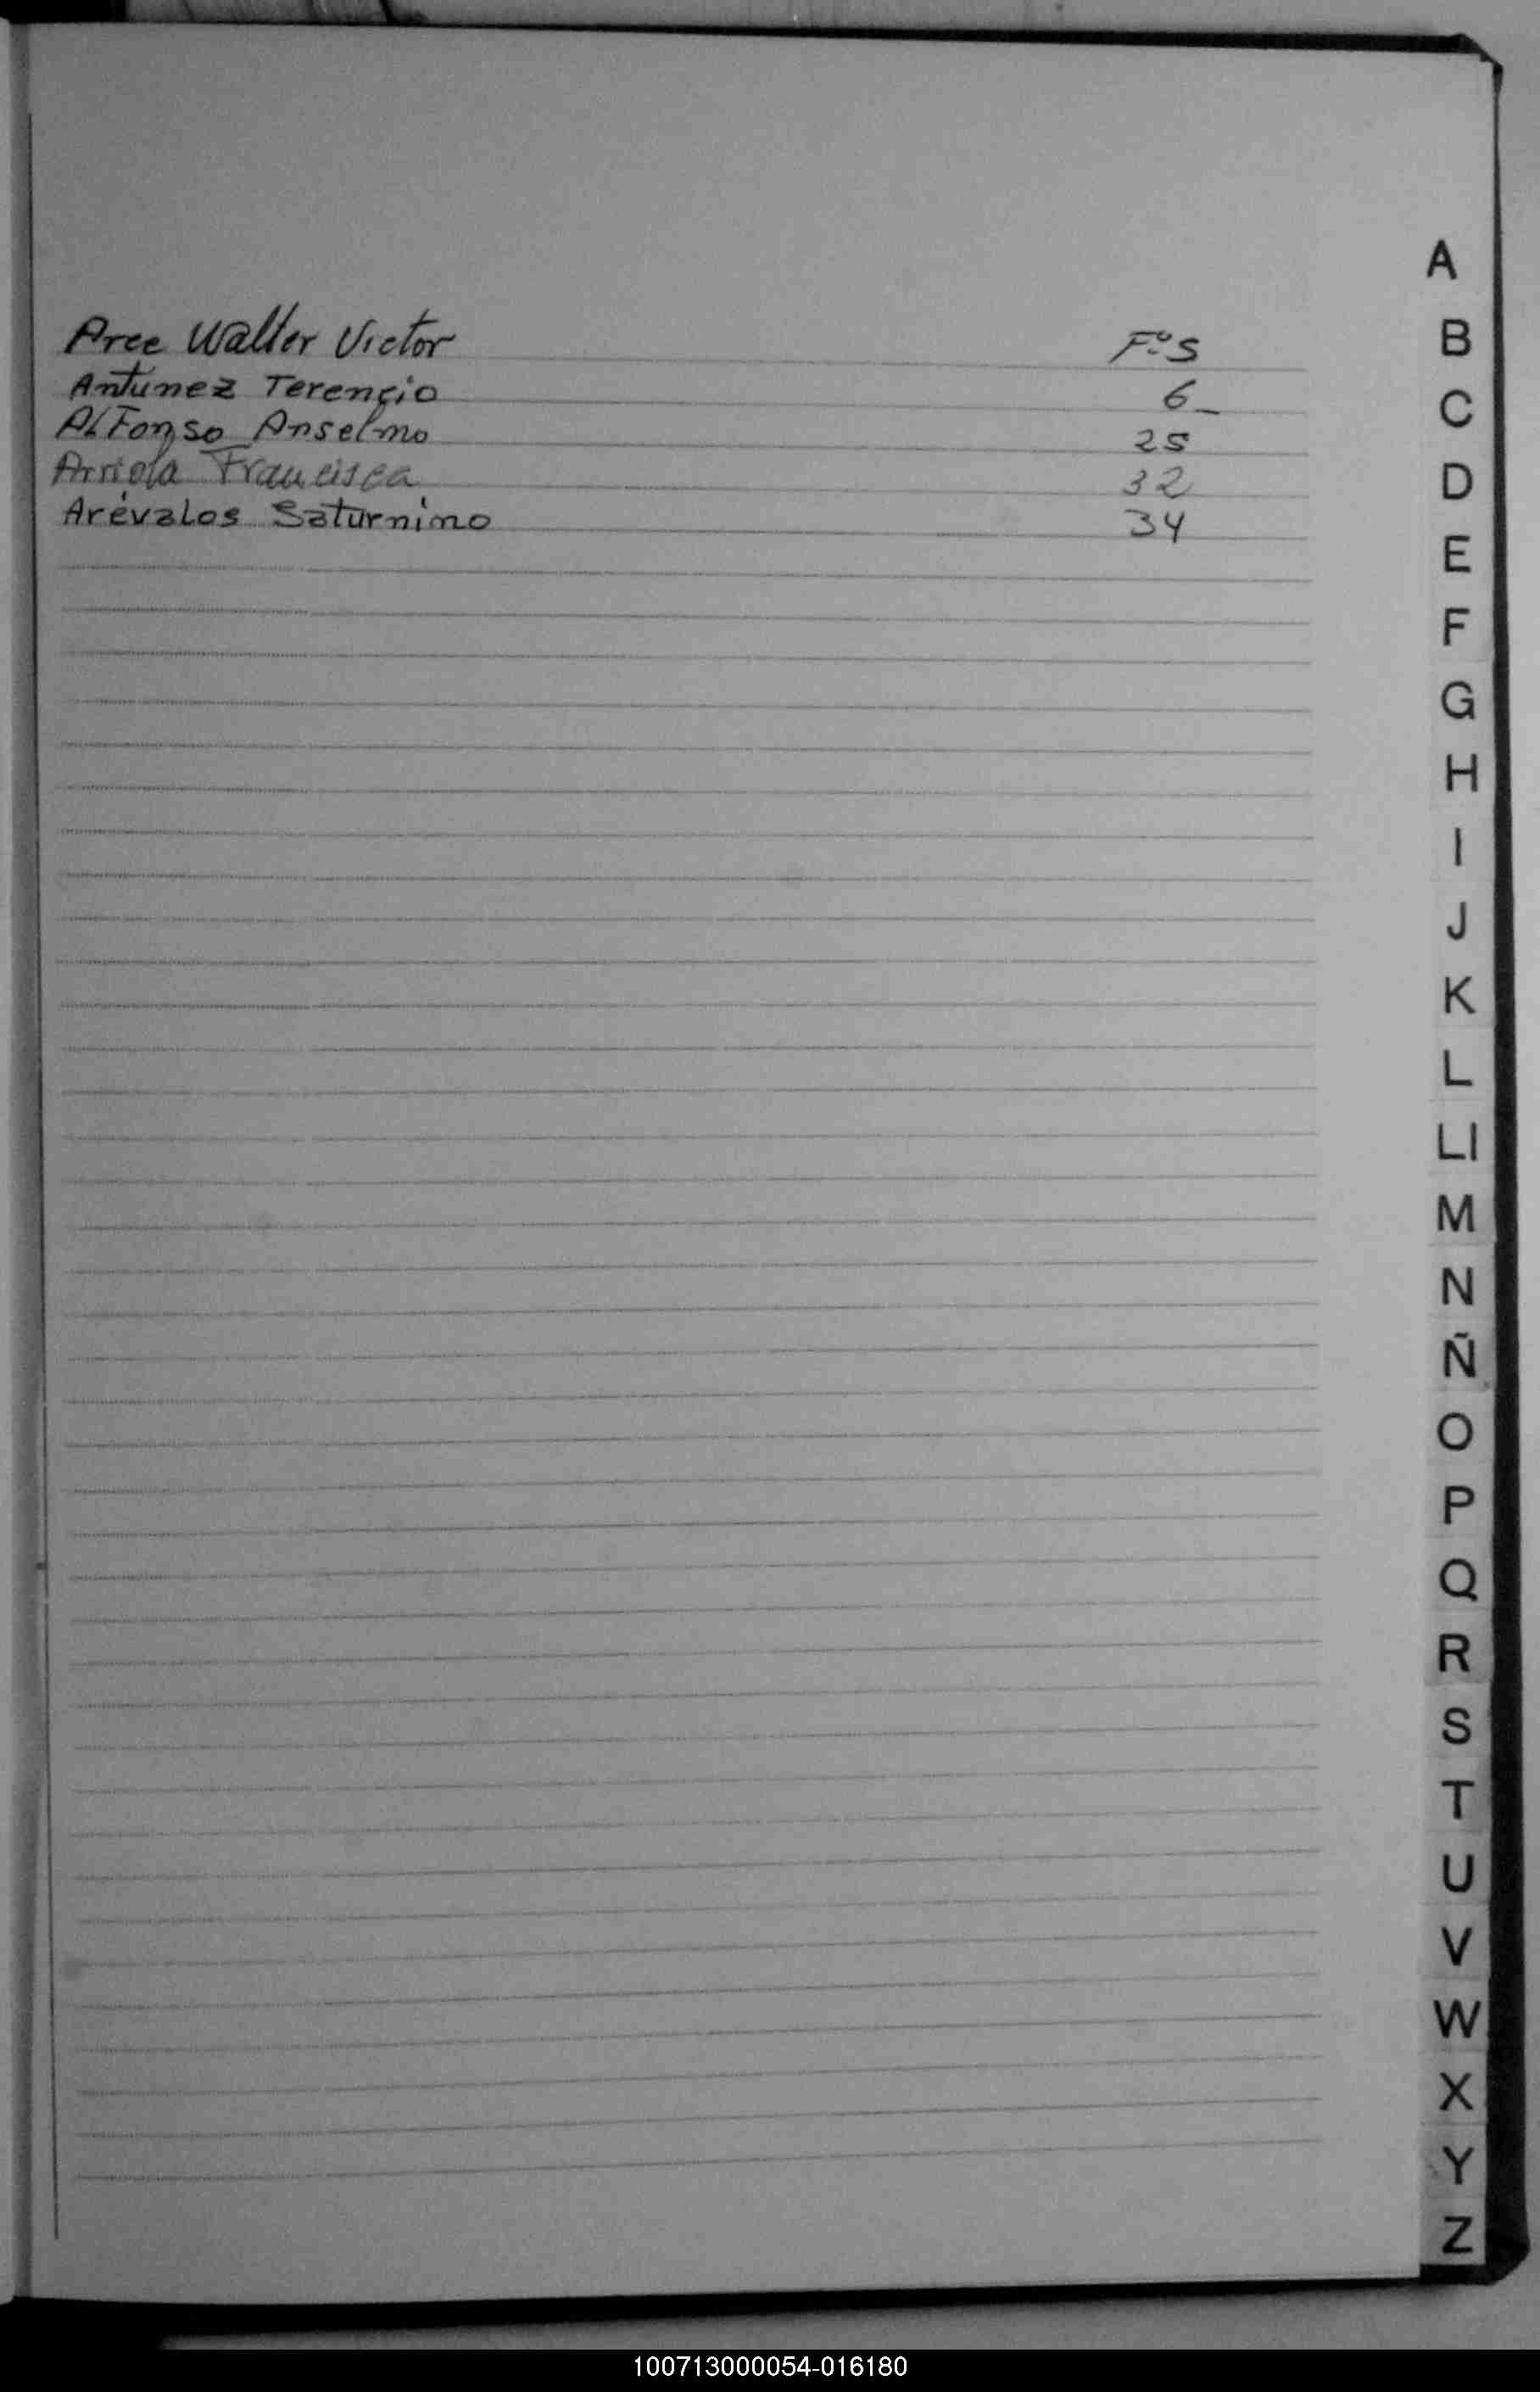 Arce Walter Victor F:º 5
Antunez Terencio 6_
Alfonso Anselmo 25
Arriola Francisca 32
Arévalos Saturnino 34
A
B
C
D
E
F
G
H
I
J
K
L
Ll
M
N
Ñ
O
P
Q
R
S
T
U
V
W
X
Y
Z
100713000054-016180